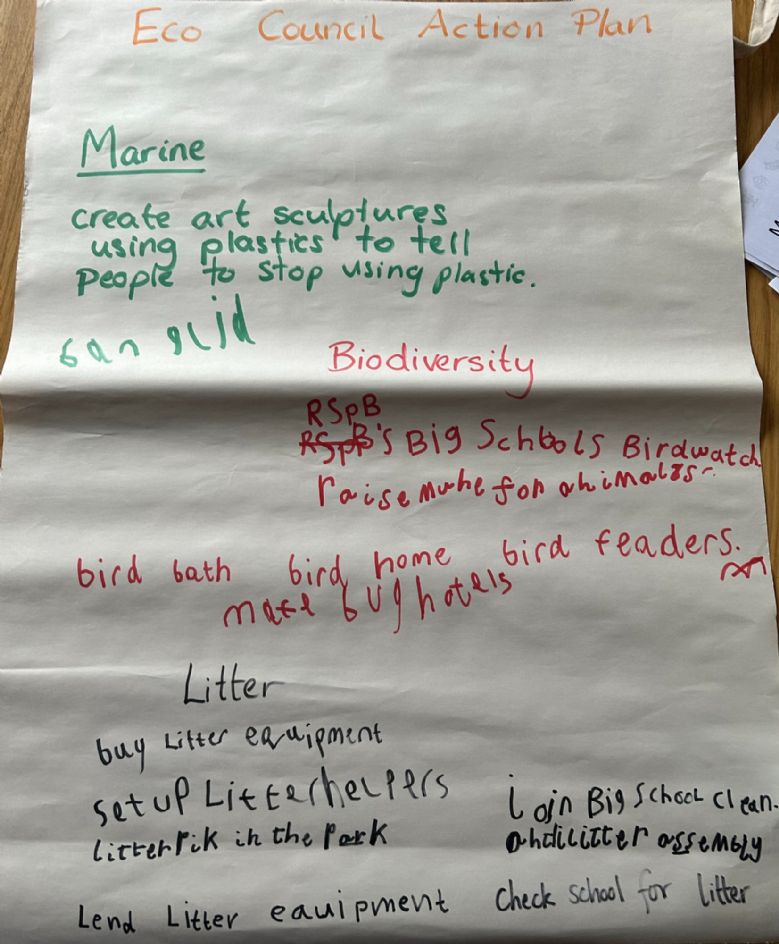 Eco Council Action Plan
Marine
create art sculptures
using plastics to tell
people to stop using plastic.
ban
Biodiversity
RSPB
RSPB's Big Schools Birdwatch
raise for animals
bird bath bird home bird feaders.
make bug hotels
Litter
buy Litter equipment
set up Litter helpers
litter pik in the Park
Lend Litter equipment
join Big School clean.
antilitter assembly
Check school for litter